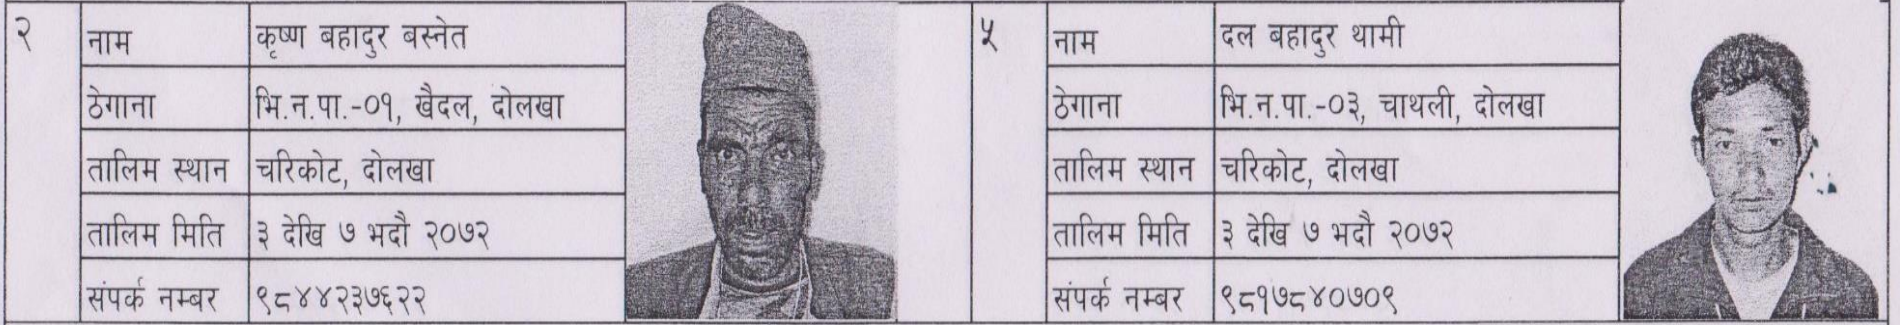 २
नाम कृष्ण बहादुर बस्नेत
ठेगाना भि.न.पा.-०१, खैदल, दोलखा
तालिम स्थान चरिकोट, दोलखा
तालिम मिति ३ देखि ७ भदौ २०७२
संपर्क नम्बर ९८४४२३७६२२
५
नाम दल बहादुर थामी
ठेगाना भि.न.पा.-०३, चाथली, दोलखा
तालिम स्थान चरिकोट, दोलखा
तालिम मिति ३ देखि ७ भदौ २०७२
संपर्क नम्बर ९८१७८४०७०९